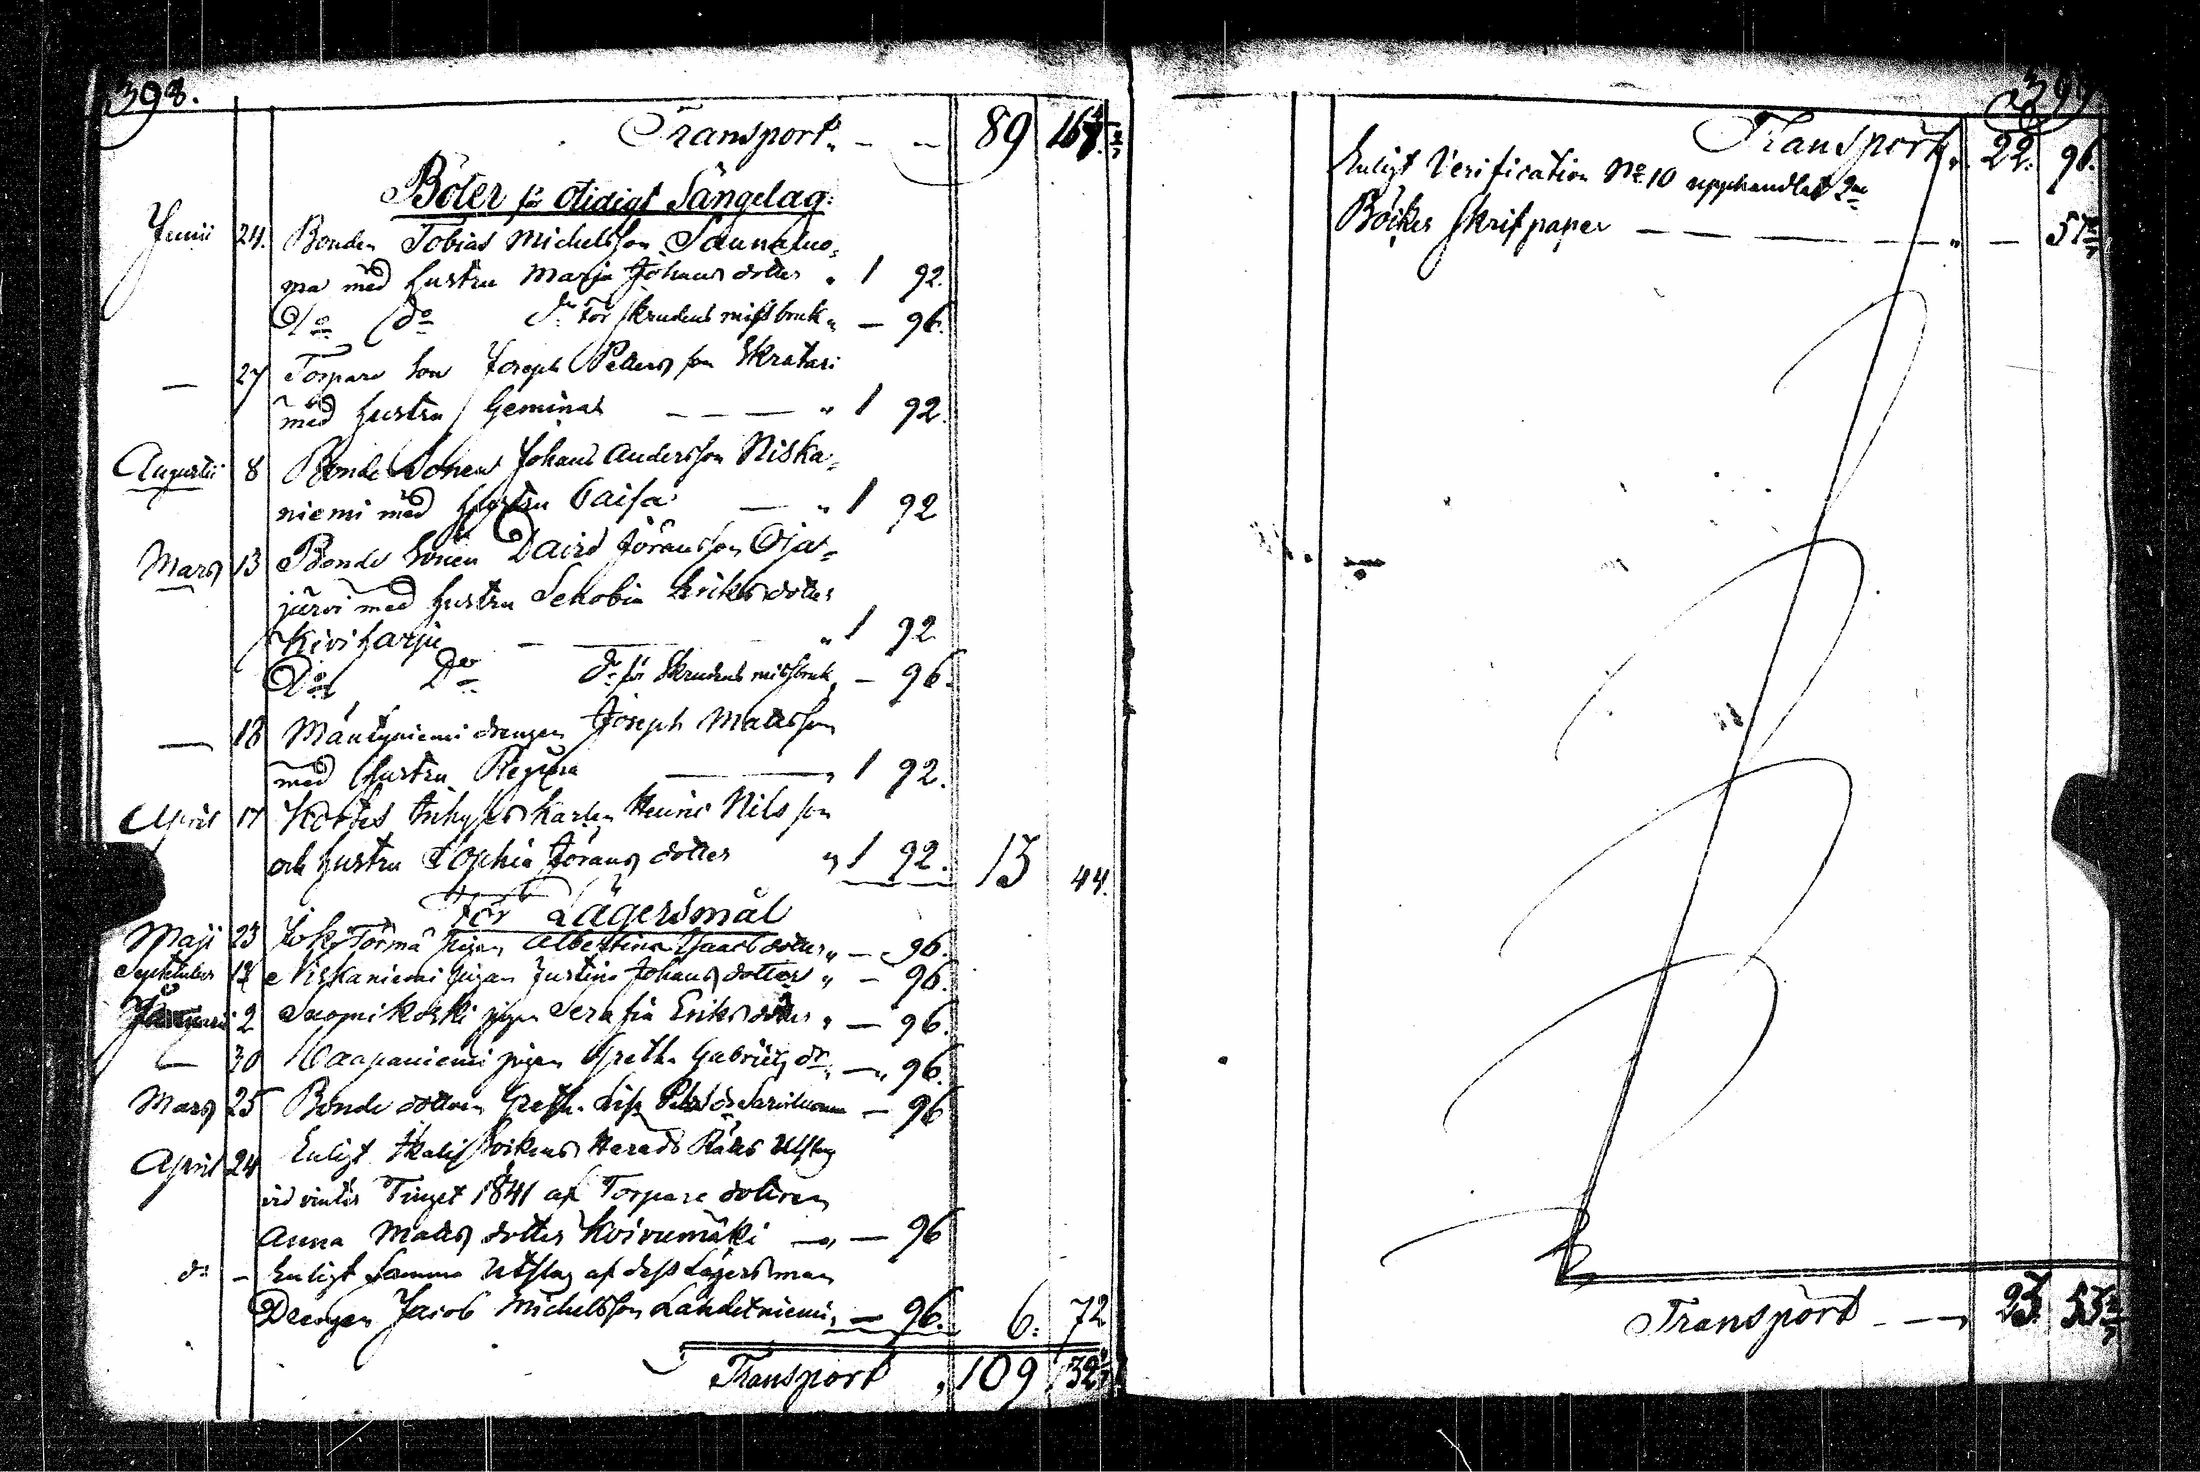 398.
Transport 89 16
Böter för otidigt Sängelag:
Junii 24. Bonden Tobias Michelsson Saunaluo-
ma med hustru Maria Johans dotter " 1 92.
D:o d:o d:o för skrudens missbruk " — 96.
— 27 Torpare Son Joseph Petters son Skratari
med hustru Geminas — — — " 1 92.
Augustii 8 Bonde Sonen Johans Andersson Niska-
niemi med hustru Caisa — " 1 92
Mars 13 Bonde Sonen David Jöransson Oja-
järvi med hustru Eriks dotter
Kiviharju — — " 1 92
D:o D:o d:o för Skrudens missbruk " — 96.
— 18 Mäntyniemi drengen Joseph Matsson
med hustru Regina — " 1 92.
April 17 Kortes Inhyses Karlen Henric Nils son
och hustru Sophia Jörans dotter " 1 92. 13 44.
För Lägersmål
Maji 23 Törmä pigan Albertina Isaacs dotter " — 96.
September 12 Niskaniemi pigan Justina Johans dotter " — 96.
Januarii 2 Suopnikoski pigan Serafia Eriks dotter " — 96.
— 30 Haapaniemi pigan Greta Gabriels dr " — " 96.
Mars 25 Bonde dottren Greth. Lisa — 96
April 24 Enligt Härads Rätts Utslag
vid vinter Tinget 1841 af Torpare dottren
Anna Mats dotter Koivumäki — " — 96
d:o — Enligt samma Utslag af dess Lägersman
Drengen Jacob Michelsson Lahdetniemi " — 96. 6: 72
Transport " 109 32
399
Transport " 22. 96.
Enligt Verification No 10 upphandlat 2ne
Böcker skrifpaper — — — — " — 57
Transport — — " 23. 53